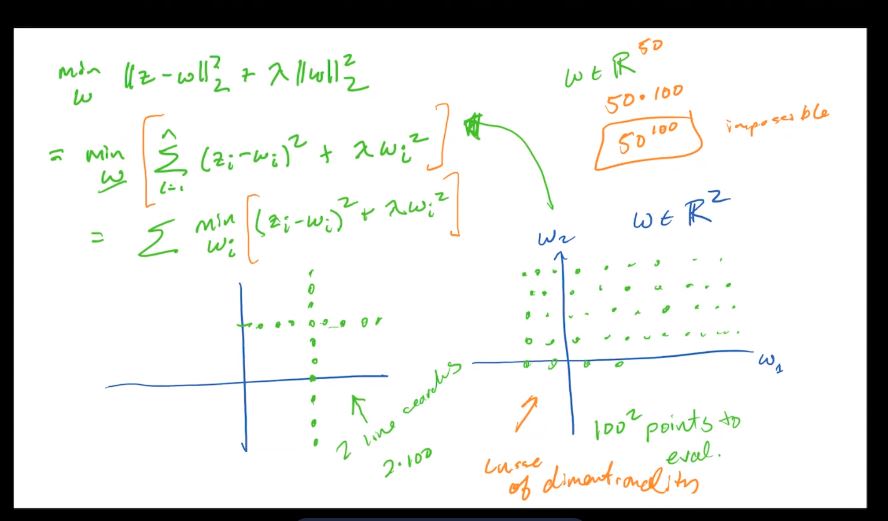 min ||z-w||₂² + λ||w||₂²
w
= min [ Σ (zᵢ-wᵢ)² + λwᵢ² ]
w i=1 n
= Σ min [(zᵢ-wᵢ)² + λwᵢ²]
wᵢ
w ∈ ℝ⁵⁰
50·100
50¹⁰⁰ impossible
w ∈ ℝ²
w₂
w₁
2 line searches
2·100
100² points to
eval.
curse
of dimentionality